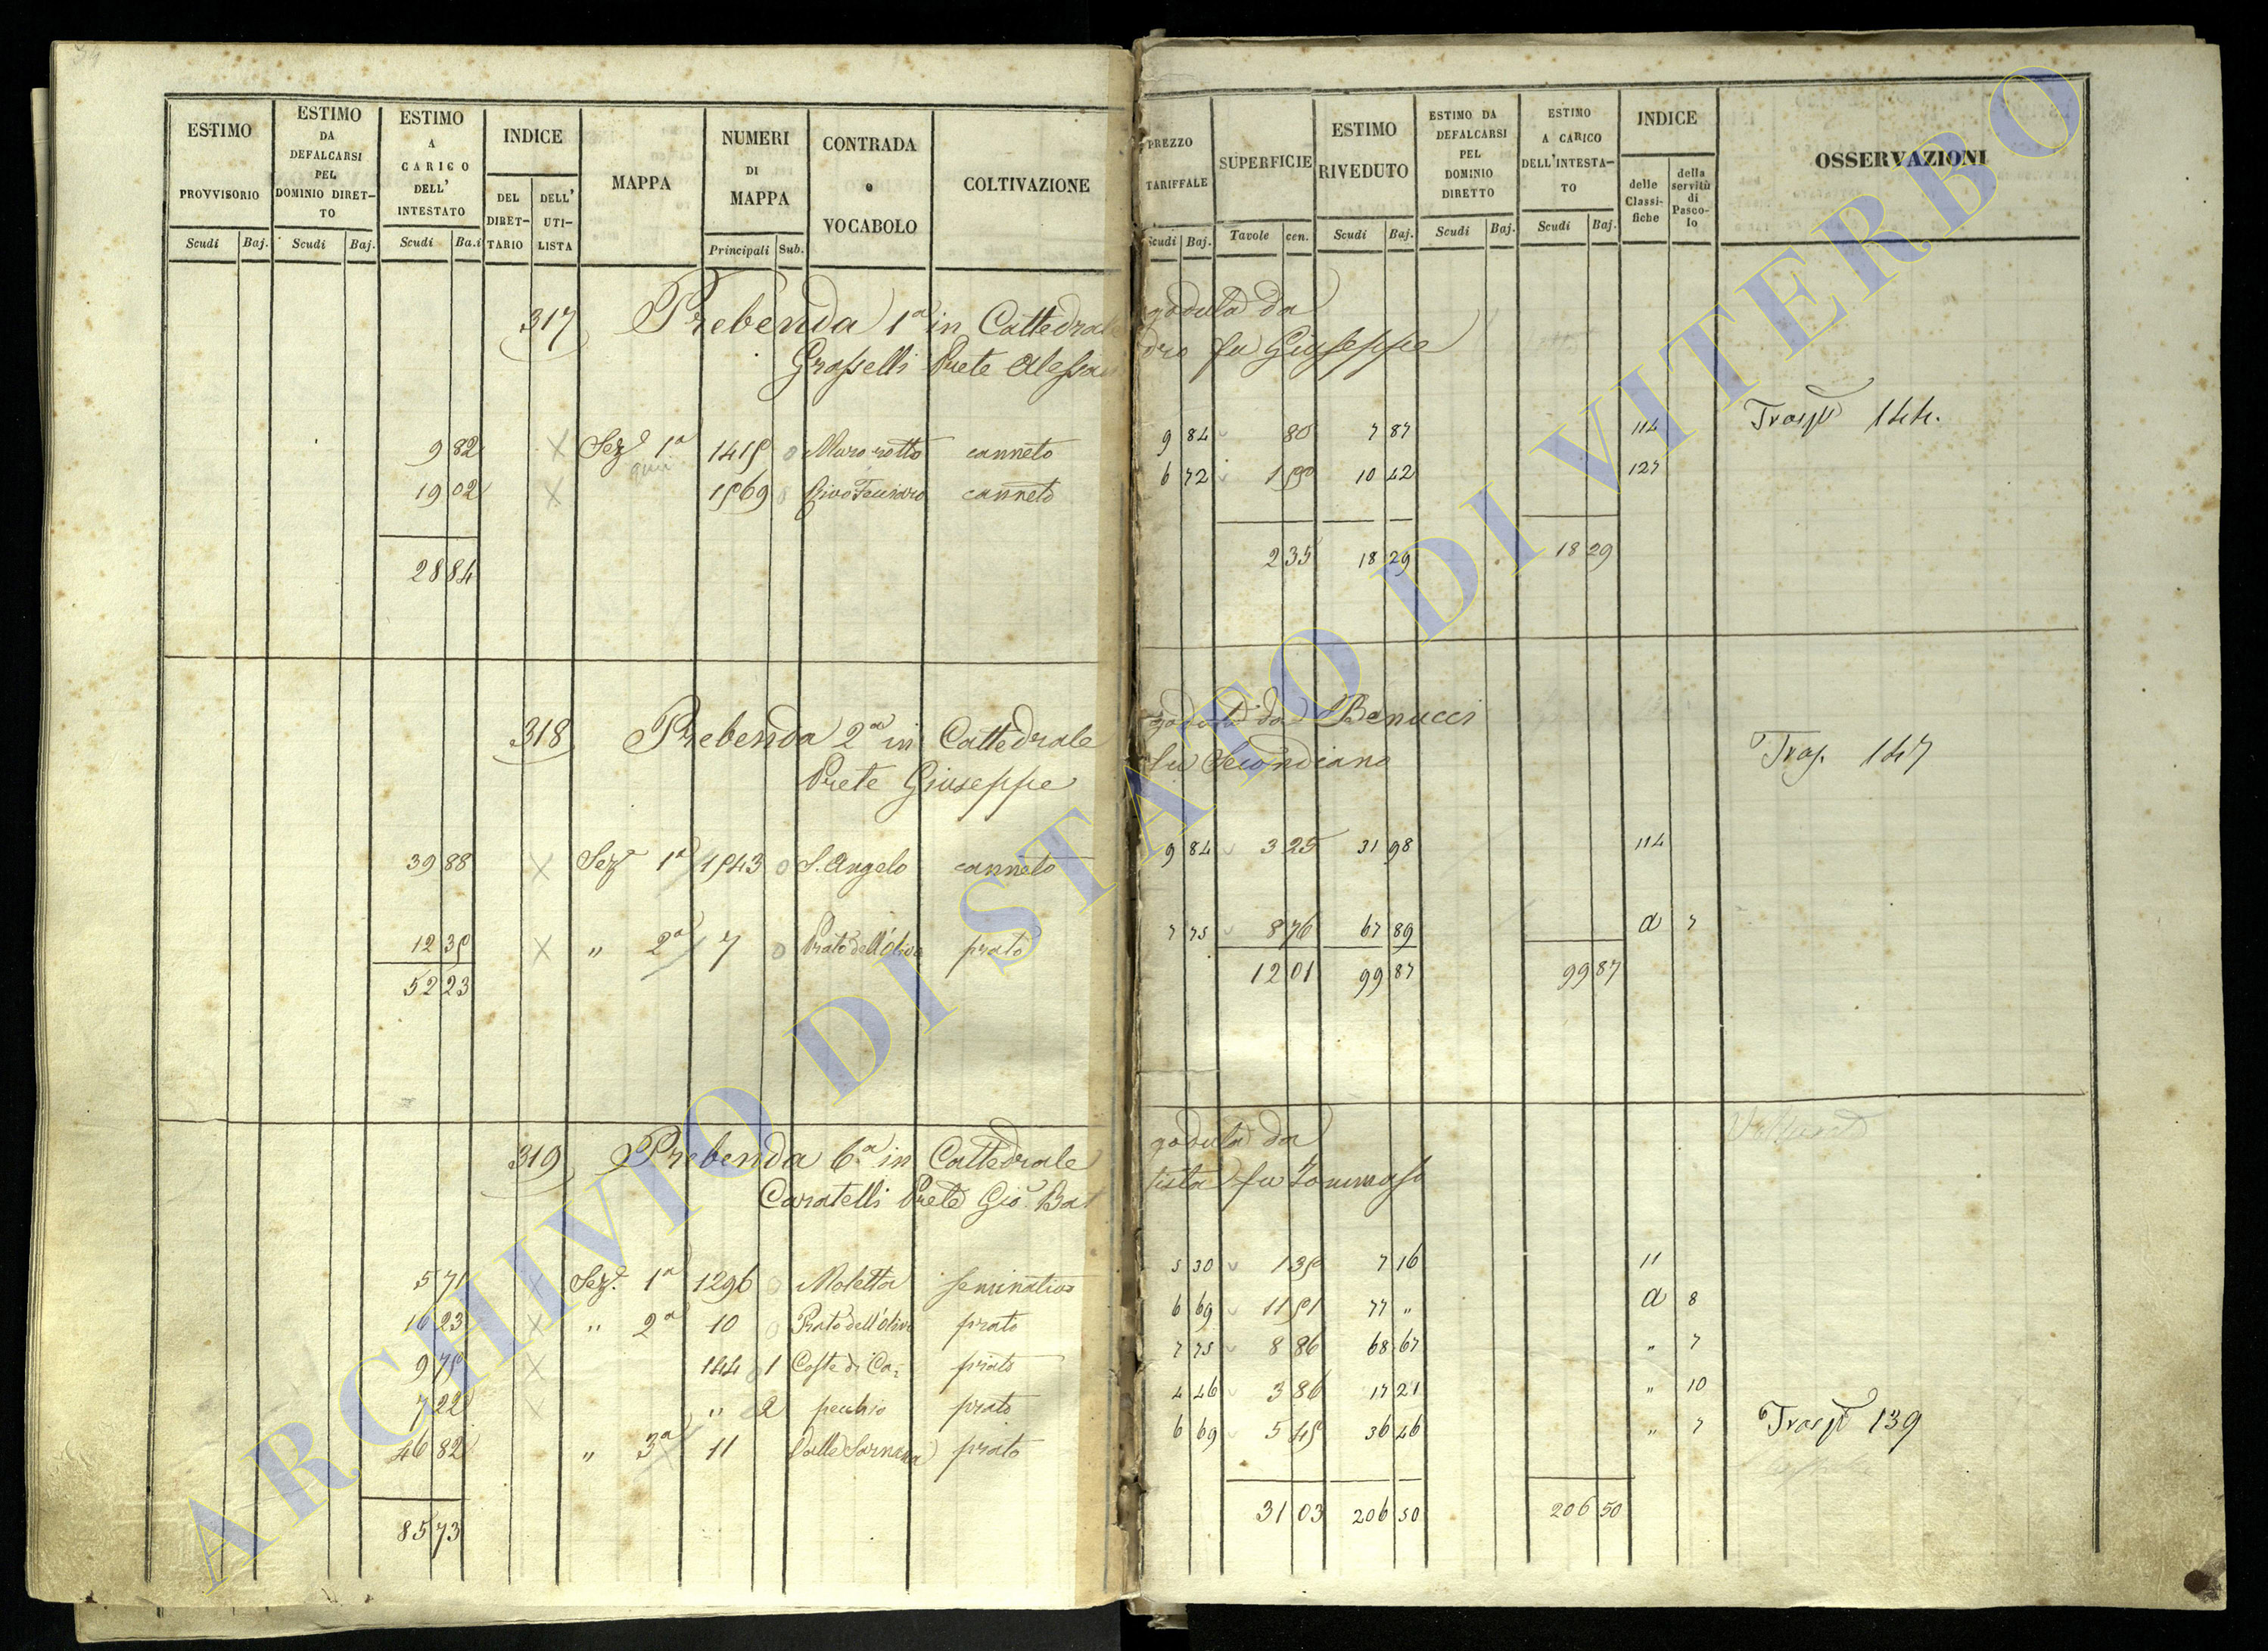 34
ESTIMO PROVVISORIO Scudi Baj.
ESTIMO DA DEFALCARSI PEL DOMINIO DIRET-TO Scudi Baj.
ESTIMO A CARICO DELL' INTESTATO Scudi Ba.i
INDICE DEL DIRET-TARIO DELL' UTI-LISTA
MAPPA
NUMERI DI MAPPA Principali Sub.
CONTRADA o VOCABOLO
COLTIVAZIONE
PREZZO TARIFFALE Scudi Baj.
SUPERFICIE Tavole cen.
ESTIMO RIVEDUTO Scudi Baj.
ESTIMO DA DEFALCARSI PEL DOMINIO DIRETTO Scudi Baj.
ESTIMO A CARICO DELL'INTESTA-TO Scudi Baj.
INDICE delle Classi-fiche della servitù di Pasco-lo
OSSERVAZIONI
317 Prebenda 1a in Cattedrale goduta da
Grasselli Prete Alessandro fu Giuseppe
Trasp 144.
9 82 X Sez.e 1a 1415 0 Muro rotto canneto 9 84 80 7 87 114
19 02 X 1569 canneto 6 72 1 55 10 42 127
28 84 2 35 18 29 18 29
318 Prebenda 2a in Cattedrale goduta da Benucci
Prete Giuseppe fu Secondiano
Trasp. 147
39 88 X Sez.e 1a 1543 0 S. Angelo canneto 9 84 3 25 31 98 114
12 35 X " 2a 7 0 Prato dell'Oliva prato 7 75 8 76 67 89 a 7
52 23 12 01 99 87 99 87
319 Prebenda 6.a in Cattedrale goduta da
Caratelli Prete Gio. Battista fu Tommaso
5 71 X Sez.e 1a 1296 0 Moletta seminativo 5 30 1 35 7 16 11
16 23 X " 2a 10 0 Prato dell'Oliva prato 6 69 11 51 77 " a 8
9 75 X 144 1 Coste di Ca= prato 7 75 8 86 68 67 " 7
7 22 X " 2 pecchio prato 4 46 3 86 17 21 " 10
46 82 " 3a 11 prato 6 69 5 45 36 46 " 7 Trasp 139
85 73 31 03 206 50 206 50
ARCHIVIO DI STATO DI VITERBO